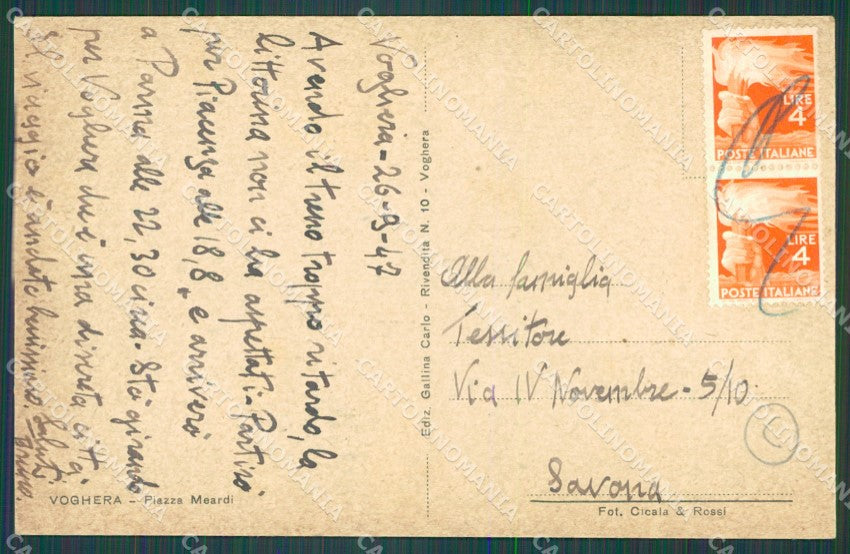 Voghera - 26-9-47
Avendo il treno troppo ritardo, la
littorina non ci ha aspettati - Partirò
per Piacenza alle 18,8 e arriverò
a Parma alle 22,30 circa. Sto girando
per Voghera che è una discreta città.
Il viaggio è andato benissimo. Saluti
Bruno.
VOGHERA - Piazza Meardi
Ediz. Gallina Carlo - Rivendita N. 10 - Voghera
LIRE
4
POSTE ITALIANE
LIRE
4
POSTE ITALIANE
Alla famiglia
Tessitore
Via IV Novembre - 5/10
Savona
Fot. Cicala & Rossi
CARTOLINOMANIA